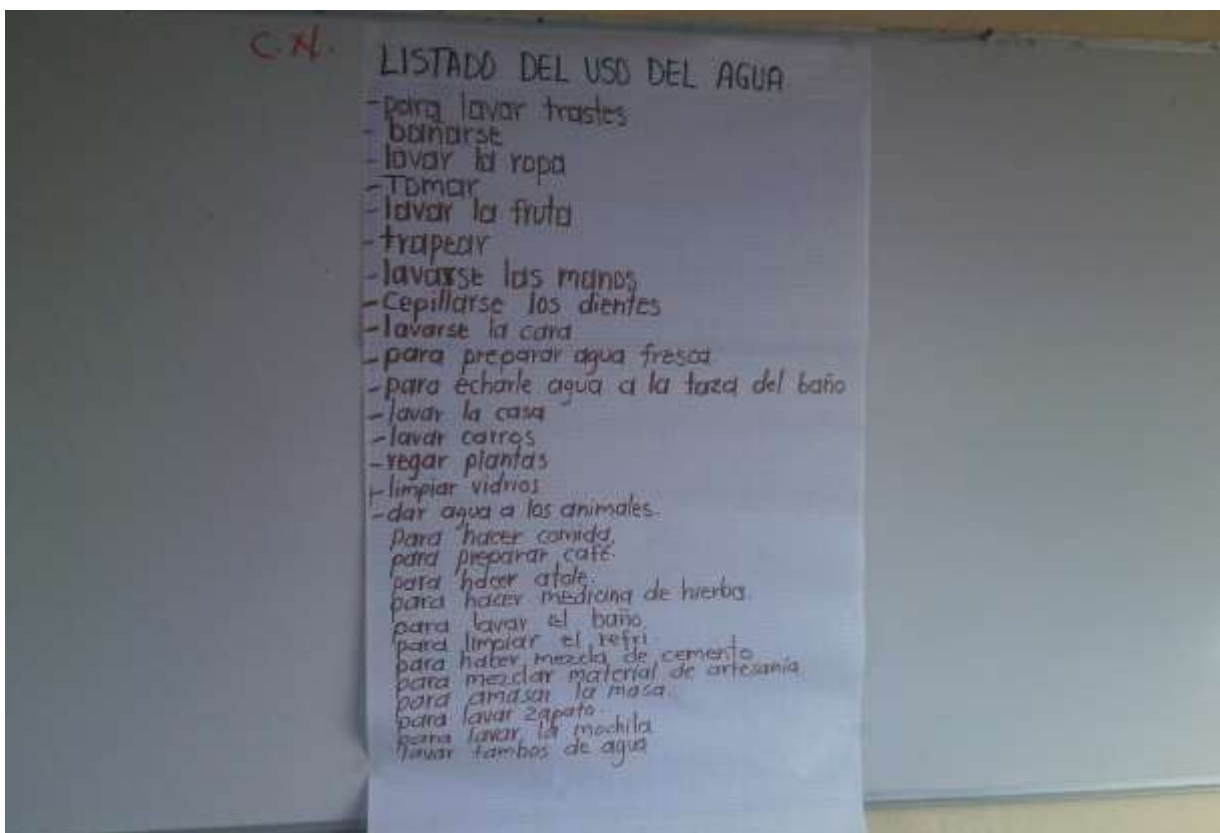 C.N.
LISTADO DEL USO DEL AGUA
-para lavar trastes
- bañarse
-lavar la ropa
-Tomar
-lavar la fruta
-trapear
-lavarse las manos
-Cepillarse los dientes
-lavarse la cara
-para preparar agua fresca
-para echarle agua a la taza del baño
-lavar la casa
-lavar carros
-regar plantas
-limpiar vidrios
-dar agua a los animales.
para hacer comida.
para preparar café.
para hacer atole.
para hacer medicina de hierba.
para lavar el baño
para limpiar el refri.
para hacer mezcla de cemento
para mezclar material de artesanía
para amasar la masa.
para lavar zapato
para lavar la mochila
lavar tambos de agua